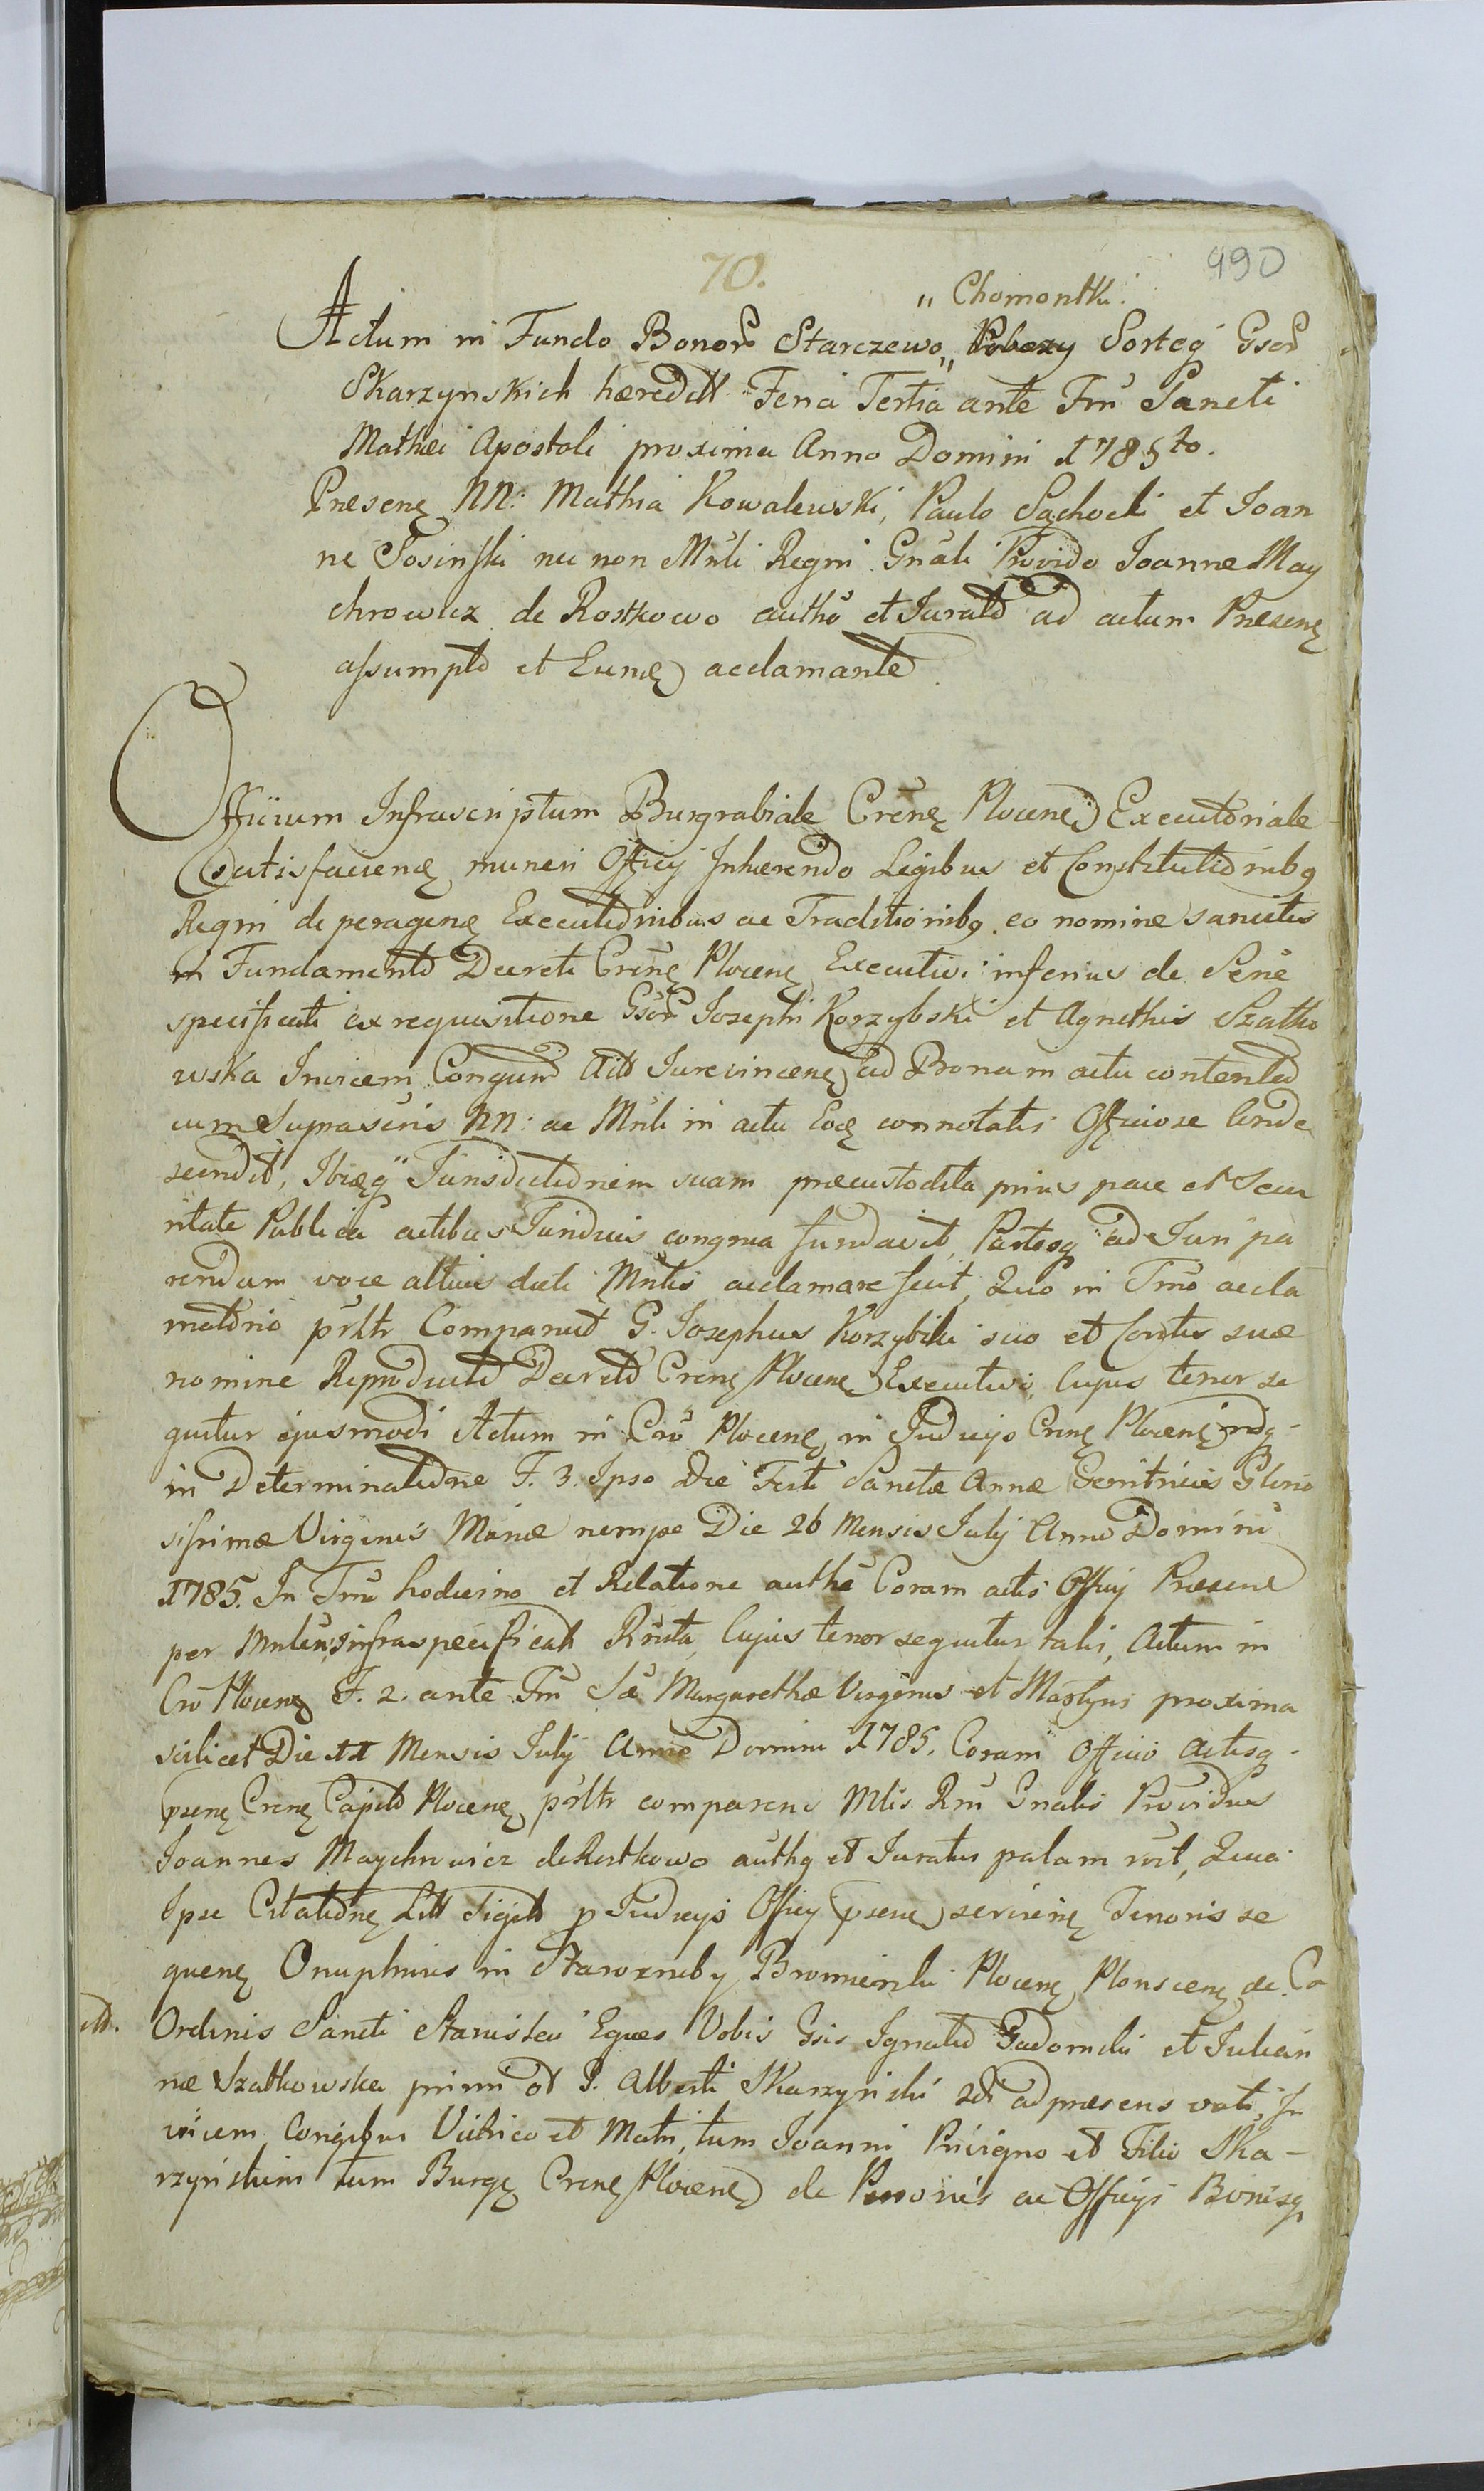 70.
490
" Chomontki.
Actum in Fundo Bonor Starczewo " Pobozy Sorteq Gsor
Skarzynskich hæredit Feria Tertia ante Fm Sancti
Mathæi Apostoli proxima Anno Domini 1785to.
Præsenę NN: Mathia Kowalewski, Paulo Sąchocki et Joan
ne Tosinski nec non Mnli Regni Gnali Provido Joanne May
chrowicz de Rostkowo autho et Jurato ad actum Præsenę
assumpto et acclamante
Officium Infrascriptum Burgrabiale Crenę Plocenę Executoriale
Satisfacienę muneri Officij Inhærendo Legibus et Constitutionibq
Regni de peragenę Executionibus ac Traditionibq eo nomine sancitis
in Fundamento Decreti Crenę Plocenę Executivi inferius de Serie
specificati ex requisitione Gsor Josephi Korzybski et Agnethis Szatko
wska Invicem Conjgum Actor Jurevincenę ad Bona in actu contenta
cum Suprascris NN: ac Mnli in actu Eoę connotatis Officiose Conde
scendit, Ibięq Jurisdictionem suam præcustodita prius pace et Secu
ritate Publica actibus Juriducis congrua fundavit, Partesq ad Juri pa
rendum voce altius dicti Mnlis acclamare fecit, Quo in Tmo accla
matorio prltr Comparuit G. Josephus Korzybski suo et Consortis suæ
nomine Reproducto Decreto Crenę Plocenę Executivo, Cujus tenor se
quitur ejusmodi Actum in Cro Plocenę in Judicijs Crenę Plocenę
in Determinatione F. 3. Ipso Die Festi Sanctæ Annæ Genitricis Glorio
sissimæ Virginis Mariæ nempe Die 26 Mensis Julij Anno Domini
1785. In Tmo hodierno et Relatione autha Coram actis Officij Præsenę
per Mnlem infraspecificat Rnita, Cujus tenor sequitur talis, Actum in
Cro Plocenę F. 2. ante Fm Sæ Margarethæ Virginis et Martyris proxima
scilicet Die XX Mensis Julij Anno Domini 1785. Coram Officio Actisq
psenę Crenę Capitl Plocenę prltr comparens Mlis Rni Gnalis Providus
Joannes Maychrowicz de Rostkowo authq et Juratus palam rvit, Quia
Ipse Citationę Litt Sigill p Judicijs Officij psenę servienę Tenoris se
quenę Onuphrius in Starozreby Bromierski Plocenę Plonscenę &c. Ca
Ordinis Sancti Stanislai Eques Vobis Gsis Ignatio Gadomski et Julian
næ Szatkowska primi ol G. Alberti Skarzynski 2di ad præsens voti, In
vicem Conjgibus Vitrico et Matri, tum Joanni Privigno et Filio Ska-
rzynskim tum Burgę Crenę Plocenę de Personis ac Officijs Bonisq